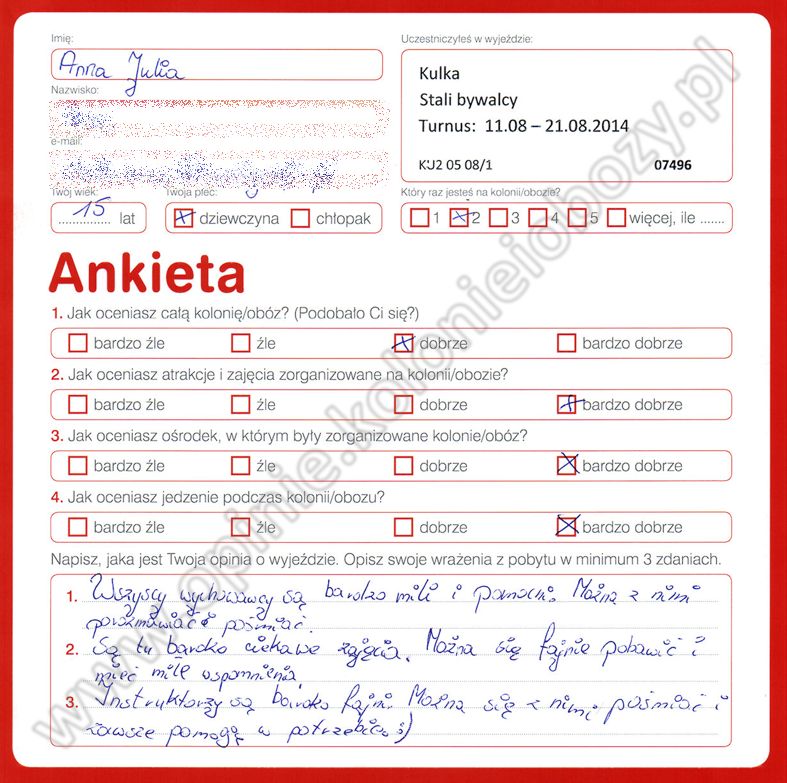 Imię:
Anna Julia
Uczestniczyłeś w wyjeździe:
Kulka
Stali bywalcy
Turnus: 11.08 – 21.08.2014
KU2 05 08/1 07496
Nazwisko:
e-mail:
Twój wiek:
15 lat
Twoja płeć:
dziewczyna chłopak
Który raz jesteś na kolonii/obozie?
1 2 3 4 5 więcej, ile .......
Ankieta
1. Jak oceniasz całą kolonię/obóz? (Podobało Ci się?)
bardzo źle źle dobrze bardzo dobrze
2. Jak oceniasz atrakcje i zajęcia zorganizowane na kolonii/obozie?
bardzo źle źle dobrze bardzo dobrze
3. Jak oceniasz ośrodek, w którym były zorganizowane kolonie/obóz?
bardzo źle źle dobrze bardzo dobrze
4. Jak oceniasz jedzenie podczas kolonii/obozu?
bardzo źle źle dobrze bardzo dobrze
Napisz, jaka jest Twoja opinia o wyjeździe. Opisz swoje wrażenia z pobytu w minimum 3 zdaniach.
1. Wszyscy wychowawcy są bardzo mili i pomocni. Można z nimi
porozmawiać i pośmiać.
2. Są tu bardzo ciekawe zajęcia. Można się fajnie pobawić i
mieć miłe wspomnienia.
3. Instruktorzy są bardzo fajni. Można się z nimi pośmiać i
zawsze pomogą w potrzebie :)
www.opinie.kolonieiobozy.pl